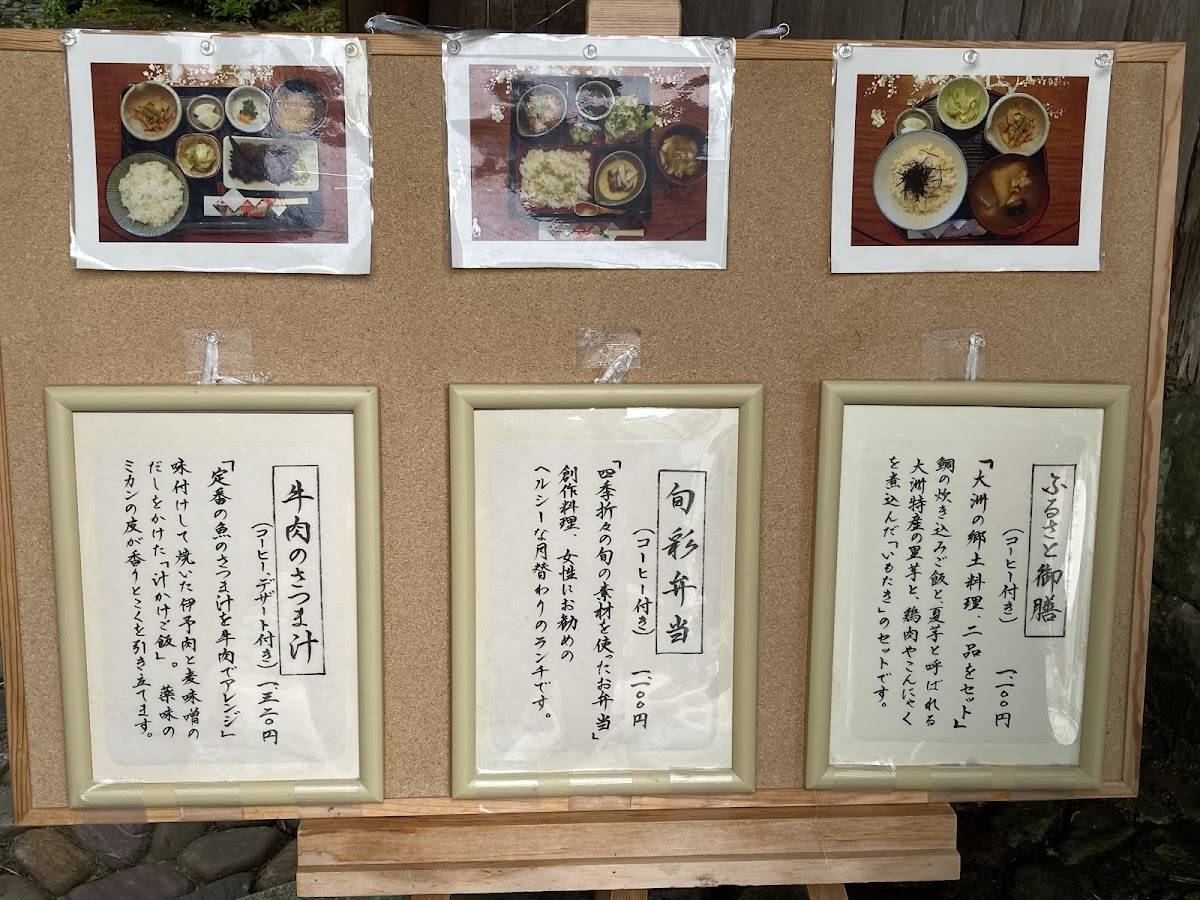 ふるさと御膳
(コーヒー付き) 一、一〇〇円
「大洲の郷土料理、二品をセット」
鯛の炊き込みご飯と、夏芋と呼ばれる
大洲特産の里芋と、鶏肉やこんにゃく
を煮込んだ「いもたき」のセットです。
旬彩弁当
(コーヒー付き) 一、一〇〇円
「四季折々の旬の素材を使ったお弁当」
創作料理、女性にお勧めの
ヘルシーな月替わりのランチです。
牛肉のさつま汁
(コーヒー、デザート付き) 一、三二〇円
「定番の魚のさつま汁を牛肉でアレンジ」
味付けして焼いた伊予肉と麦味噌の
だしをかけた「汁かけご飯」。薬味の
ミカンの皮が香りとこくを引き立てます。